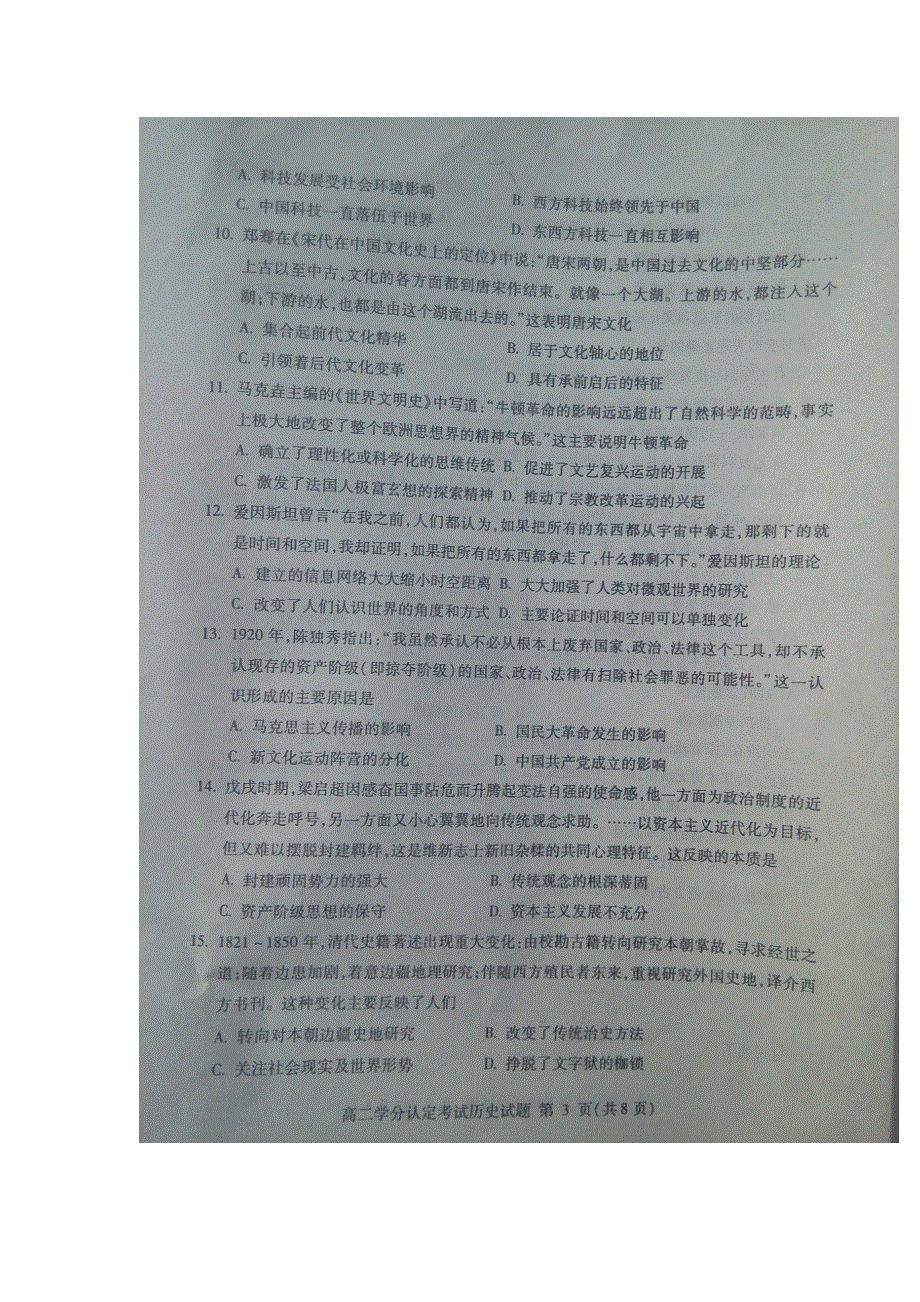 A. 科技发展受社会环境影响 B. 西方科技始终领先于中国
C. 中国科技一直落伍于世界 D. 东西方科技一直相互影响
10. 郑骞在《宋代在中国文化史上的定位》中说:“唐宋两朝,是中国过去文化的中坚部分……
上古以至中古,文化的各方面都到唐宋作结束。就像一个大湖。上游的水,都注入这个
湖;下游的水,也都是由这个湖流出去的。”这表明唐宋文化
A. 集合起前代文化精华 B. 居于文化轴心的地位
C. 引领着后代文化变革 D. 具有承前启后的特征
11. 马克垚主编的《世界文明史》中写道:“牛顿革命的影响远远超出了自然科学的范畴,事实
上极大地改变了整个欧洲思想界的精神气候。”这主要说明牛顿革命
A. 确立了理性化或科学化的思维传统 B. 促进了文艺复兴运动的开展
C. 激发了法国人极富玄想的探索精神 D. 推动了宗教改革运动的兴起
12. 爱因斯坦曾言“在我之前,人们都认为,如果把所有的东西都从宇宙中拿走,那剩下的就
是时间和空间,我却证明,如果把所有的东西都拿走了,什么都剩不下。”爱因斯坦的理论
A. 建立的信息网络大大缩小时空距离 B. 大大加强了人类对微观世界的研究
C. 改变了人们认识世界的角度和方式 D. 主要论证时间和空间可以单独变化
13. 1920 年,陈独秀指出:“我虽然承认不必从根本上废弃国家、政治、法律这个工具,却不承
认现存的资产阶级(即掠夺阶级)的国家、政治、法律有扫除社会罪恶的可能性。”这一认
识形成的主要原因是
A. 马克思主义传播的影响 B. 国民大革命发生的影响
C. 新文化运动阵营的分化 D. 中国共产党成立的影响
14. 戊戌时期,梁启超因感奋国事阽危而升腾起变法自强的使命感,他一方面为政治制度的近
代化奔走呼号,另一方面又小心翼翼地向传统观念求助。……以资本主义近代化为目标,
但又难以摆脱封建羁绊,这是维新志士新旧杂糅的共同心理特征。这反映的本质是
A. 封建顽固势力的强大 B. 传统观念的根深蒂固
C. 资产阶级思想的保守 D. 资本主义发展不充分
15. 1821~1850 年,清代史籍著述出现重大变化:由校勘古籍转向研究本朝掌故,寻求经世之
道;随着边患加剧,着意边疆地理研究;伴随西方殖民者东来,重视研究外国史地,译介西
方书刊。这种变化主要反映了人们
A. 转向对本朝边疆史地研究 B. 改变了传统治史方法
C. 关注社会现实及世界形势 D. 挣脱了文字狱的枷锁
高二学分认定考试历史试题 第 3 页(共 8 页)